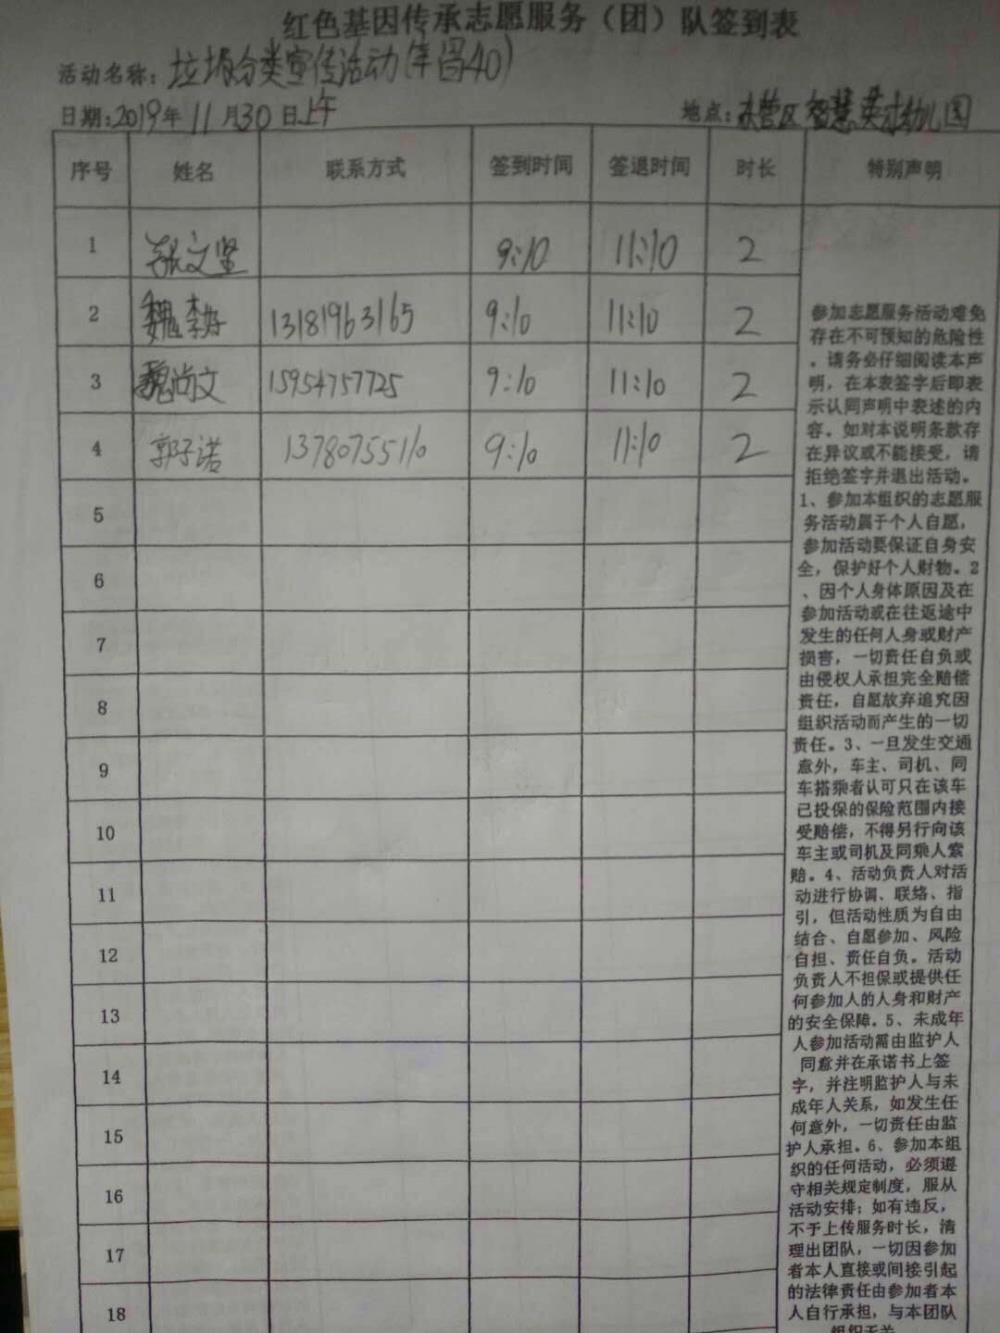 红色基因传承志愿服务（团）队签到表
活动名称：垃圾分类宣传活动(年 40)
日期：2019年11月30日上午 地点：东营区智慧英才幼儿园
序号 姓名 联系方式 签到时间 签退时间 时长 特别声明
1 张文坚 9:10 11:10 2
2 魏 13181963165 9:10 11:10 2
3 魏尚文 15954757725 9:10 11:10 2
4 郭子诺 13780755110 9:10 11:10 2
5
6
7
8
9
10
11
12
13
14
15
16
17
18
参加志愿服务活动难免
存在不可预知的危险性
，请务必仔细阅读本声
明，在本表签字后即表
示认同声明中表述的内
容。如对本说明条款存
在异议或不能接受，请
拒绝签字并退出活动。
1、参加本组织的志愿服
务活动属于个人自愿，
参加活动要保证自身安
全，保护好个人财物。2
、因个人身体原因及在
参加活动或在往返途中
发生的任何人身或财产
损害，一切责任自负或
由侵权人承担完全赔偿
责任，自愿放弃追究因
组织活动而产生的一切
责任。3、一旦发生交通
意外，车主、司机、同
车搭乘者认可只在该车
已投保的保险范围内接
受赔偿，不得另行向该
车主或司机及同乘人索
赔。4、活动负责人对活
动进行协调、联络、指
引，但活动性质为自由
结合、自愿参加、风险
自担、责任自负。活动
负责人不担保或提供任
何参加人的人身和财产
的安全保障。5、未成年
人参加活动需由监护人
同意并在承诺书上签
字，并注明监护人与未
成年人关系，如发生任
何意外，一切责任由监
护人承担。6、参加本组
织的任何活动，必须遵
守相关规定制度，服从
活动安排；如有违反，
不于上传服务时长，清
理出团队，一切因参加
者本人直接或间接引起
的法律责任由参加者本
人自行承担，与本团队
组织无关